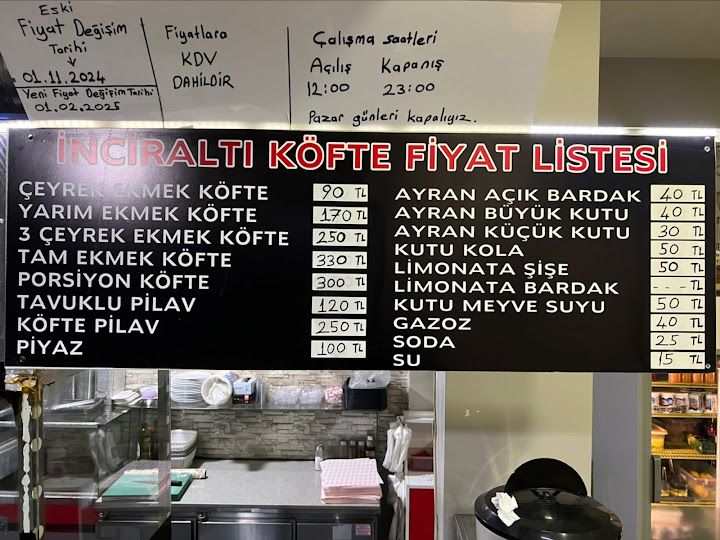 Eski
Fiyat Değişim
Tarihi
↓
01.11.2024
Yeni Fiyat Değişim Tarihi
01.02.2025
Fiyatlara
KDV
DAHİLDİR
Çalışma saatleri
Açılış Kapanış
12:00 23:00
Pazar günleri kapalıyız.
İNCİRALTI KÖFTE FİYAT LİSTESİ
ÇEYREK EKMEK KÖFTE 90 TL
YARIM EKMEK KÖFTE 170 TL
3 ÇEYREK EKMEK KÖFTE 250 TL
TAM EKMEK KÖFTE 330 TL
PORSİYON KÖFTE 300 TL
TAVUKLU PİLAV 120 TL
KÖFTE PİLAV 250 TL
PİYAZ 100 TL
AYRAN AÇIK BARDAK 40 TL
AYRAN BÜYÜK KUTU 40 TL
AYRAN KÜÇÜK KUTU 30 TL
KUTU KOLA 50 TL
LİMONATA ŞİŞE 50 TL
LİMONATA BARDAK --- TL
KUTU MEYVE SUYU 50 TL
GAZOZ 40 TL
SODA 25 TL
SU 15 TL